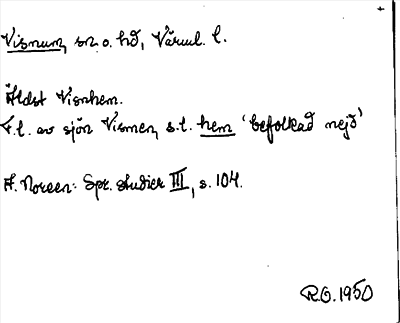 Visnum, sn o. hd, Värml. l.
Äldst Visnhem.
F.l. av sjön Vismen, s.l. hem 'befolkad nejd'
A. Noreen: Spr. studier III, s. 104.
R.O. 1950